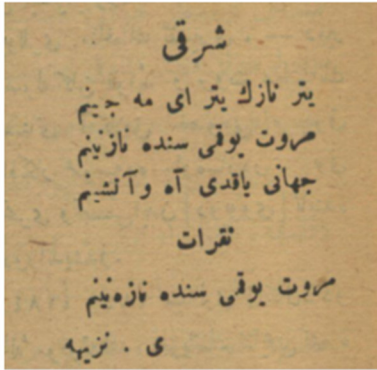 شرقى
يتر نازك يتر اى مه جبينم
مروت يوقمى سنده نازنينم
جهانى ياقدى آه وآتشينم
نقرات
مروت يوقمى سنده نازنينم
ى . نزيهه